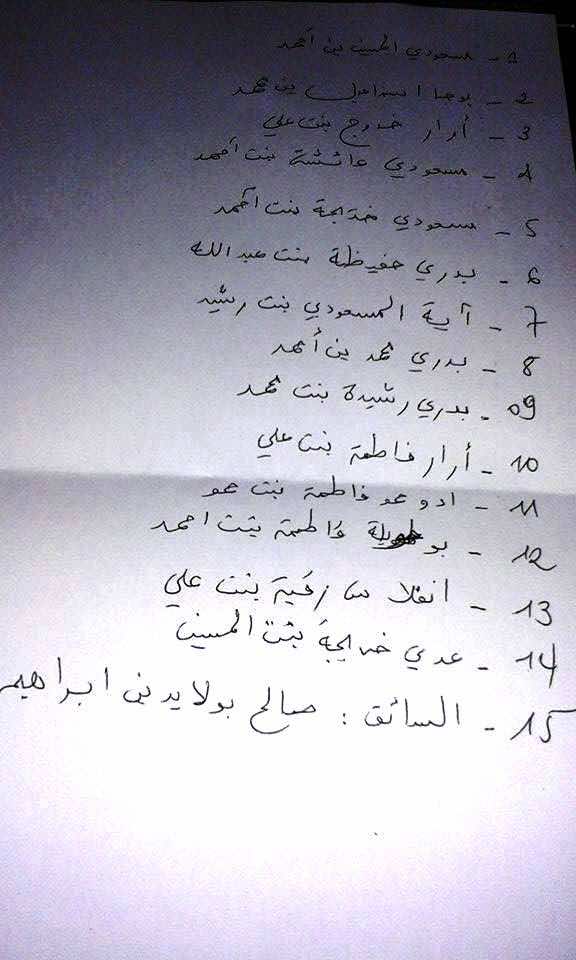 1 - مسعودي الحسين بن أحمد
2 - بوحا اسماعيل بن محمد
3 - أرار خدوج بنت علي
4 - مسعودي عائشة بنت أحمد
5 - مسعودي خديجة بنت أحمد
6 - بدري حفيظة بنت عبد الله
7 - آية المسعودي بنت رشيد
8 - بدري محمد بن أحمد
09 - بدري رشيدة بنت محمد
10 - أرار فاطمة بنت علي
11 - ادوحمو فاطمة بنت حمو
12 - فاطمة بنت احمد
13 - رقية بنت علي
14 - عدي خديجة بنت الحسين
15 - السائق : صالح بولايد بن ابراهيم